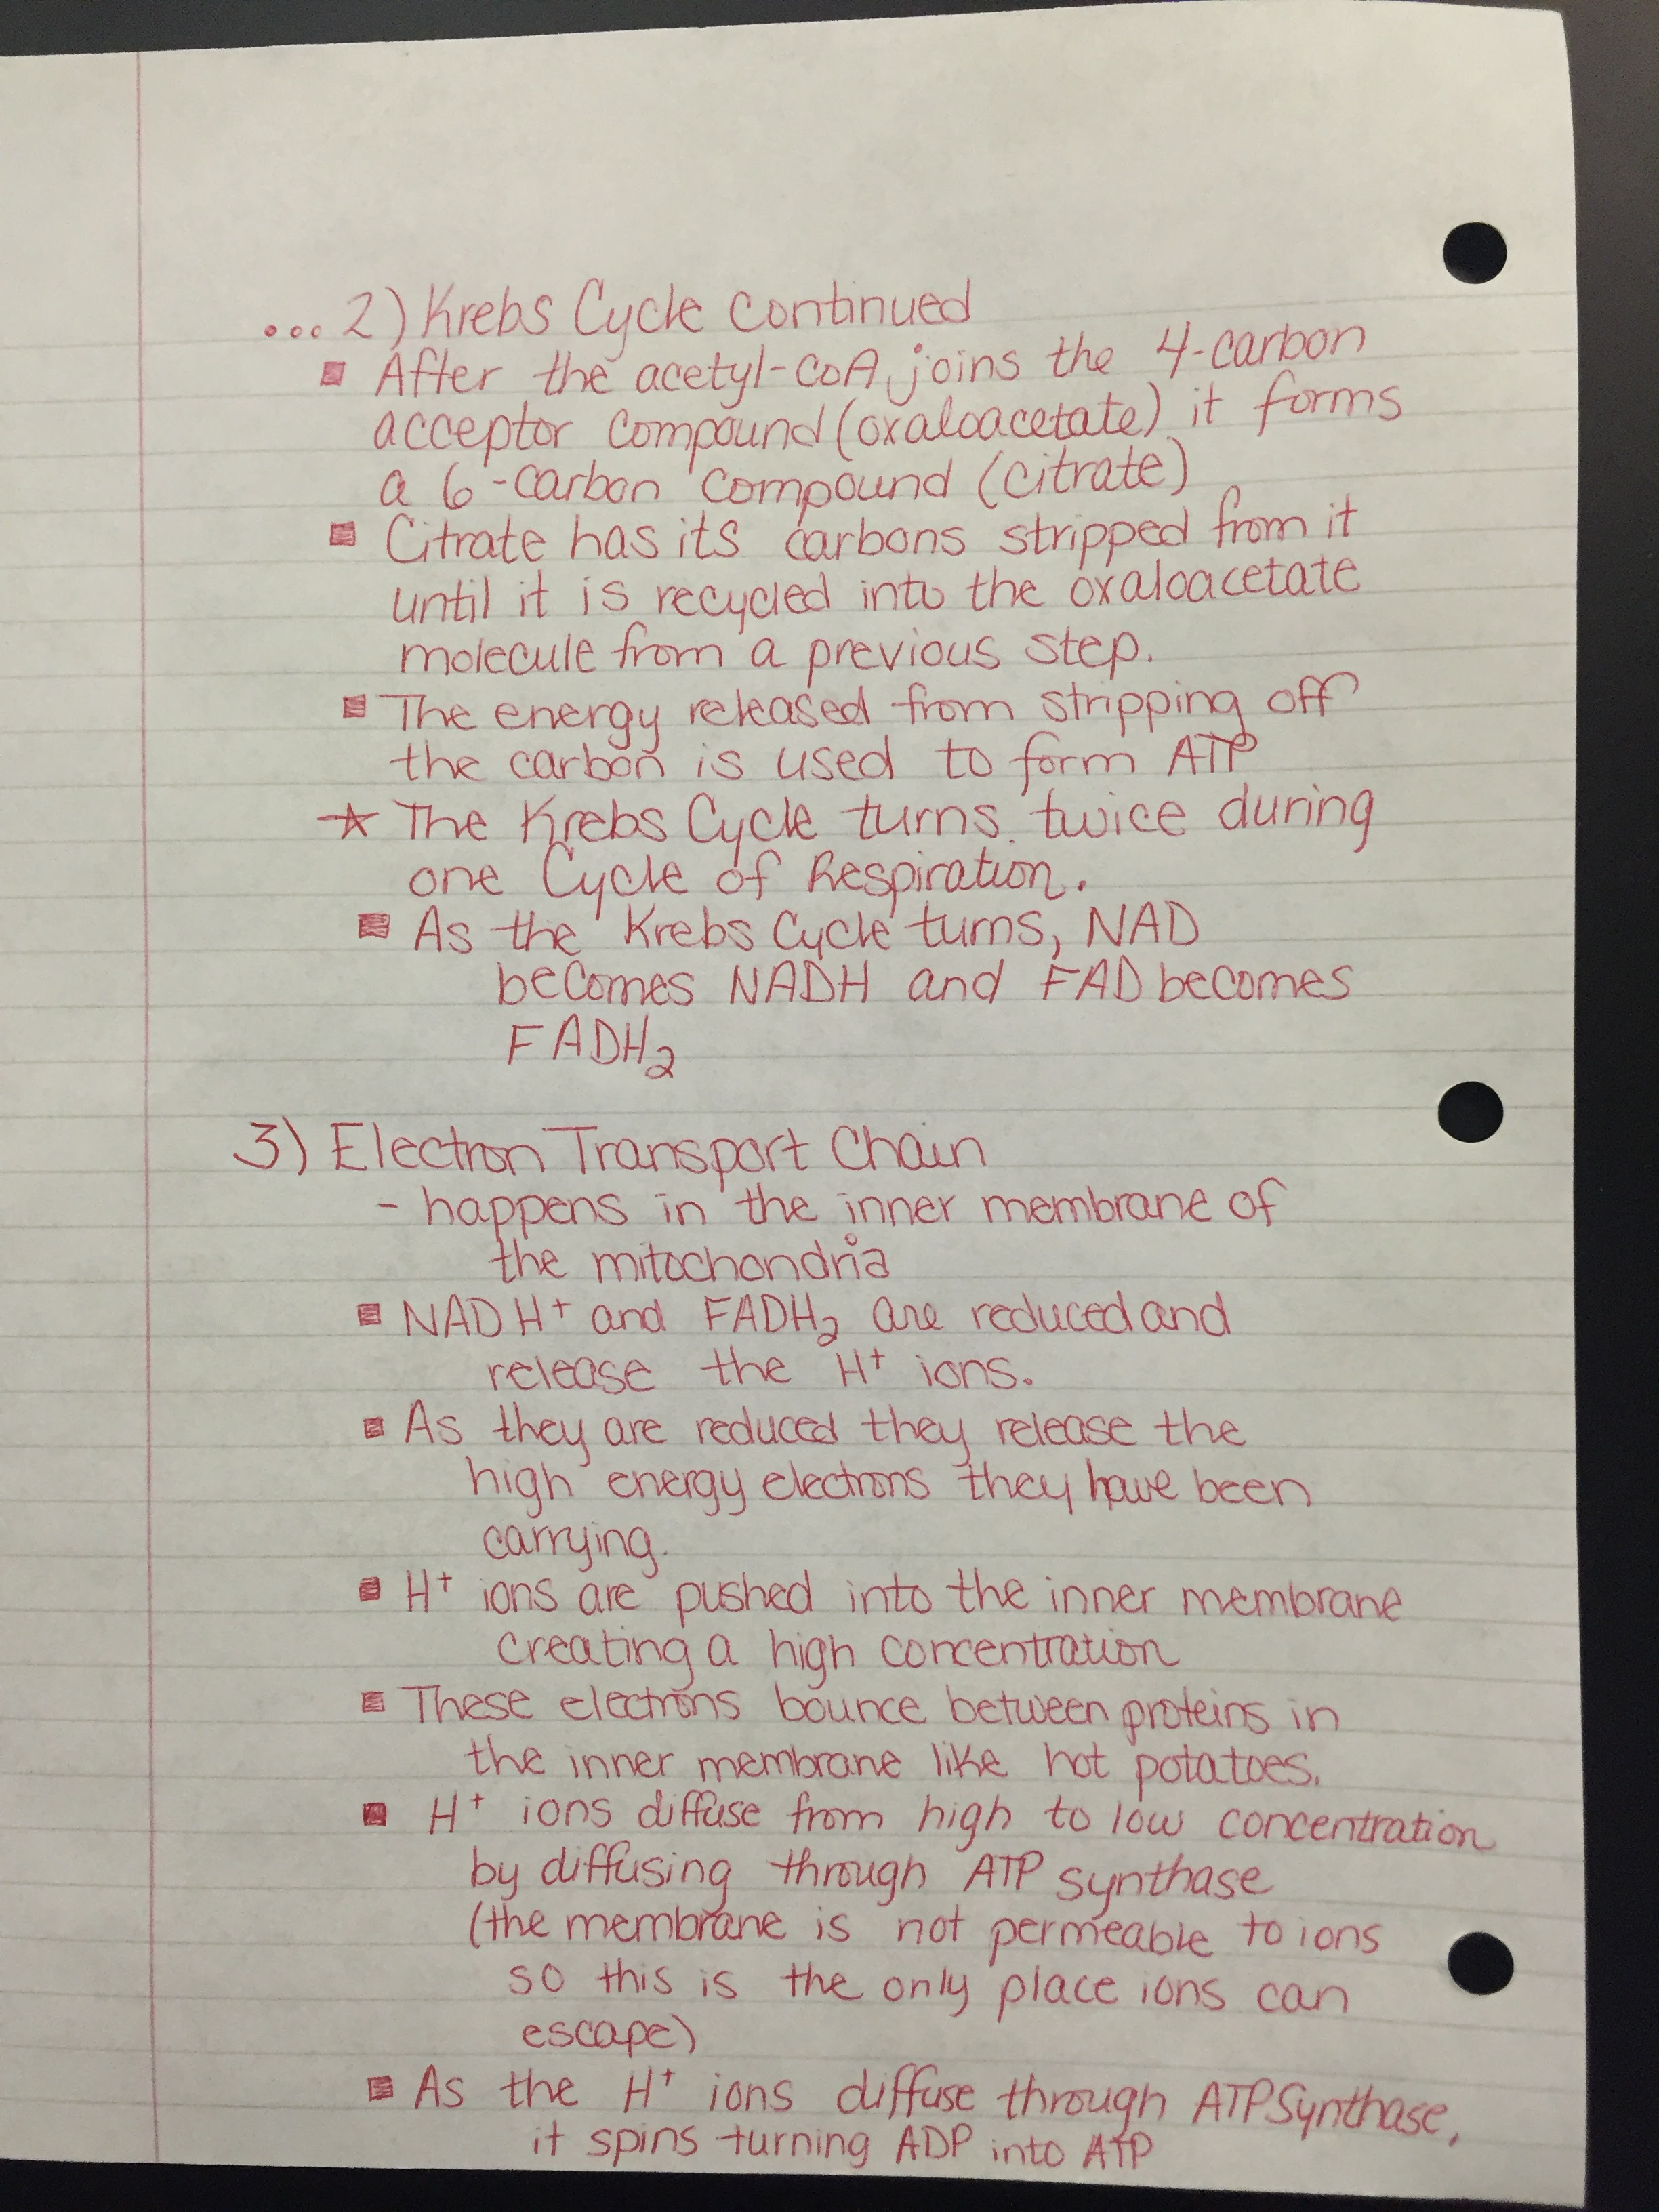 ...2) Krebs Cycle Continued
▪ After the acetyl-CoA joins the 4-carbon
acceptor compound (oxaloacetate) it forms
a 6-carbon compound (citrate)
▪ Citrate has its carbons stripped from it
until it is recycled into the oxaloacetate
molecule from a previous step.
▪ The energy released from stripping off
the carbon is used to form ATP
☆ The Krebs Cycle turns twice during
one Cycle of Respiration.
▪ As the Krebs Cycle turns, NAD
becomes NADH and FAD becomes
FADH₂
3) Electron Transport Chain
- happens in the inner membrane of
the mitochondria
▪ NADH⁺ and FADH₂ are reduced and
release the H⁺ ions.
▪ As they are reduced they release the
high energy electrons they have been
carrying.
▪ H⁺ ions are pushed into the inner membrane
creating a high concentration
▪ These electrons bounce between proteins in
the inner membrane like hot potatoes.
▪ H⁺ ions diffuse from high to low concentration
by diffusing through ATP synthase
(the membrane is not permeable to ions
so this is the only place ions can
escape)
▪ As the H⁺ ions diffuse through ATP Synthase,
it spins turning ADP into ATP